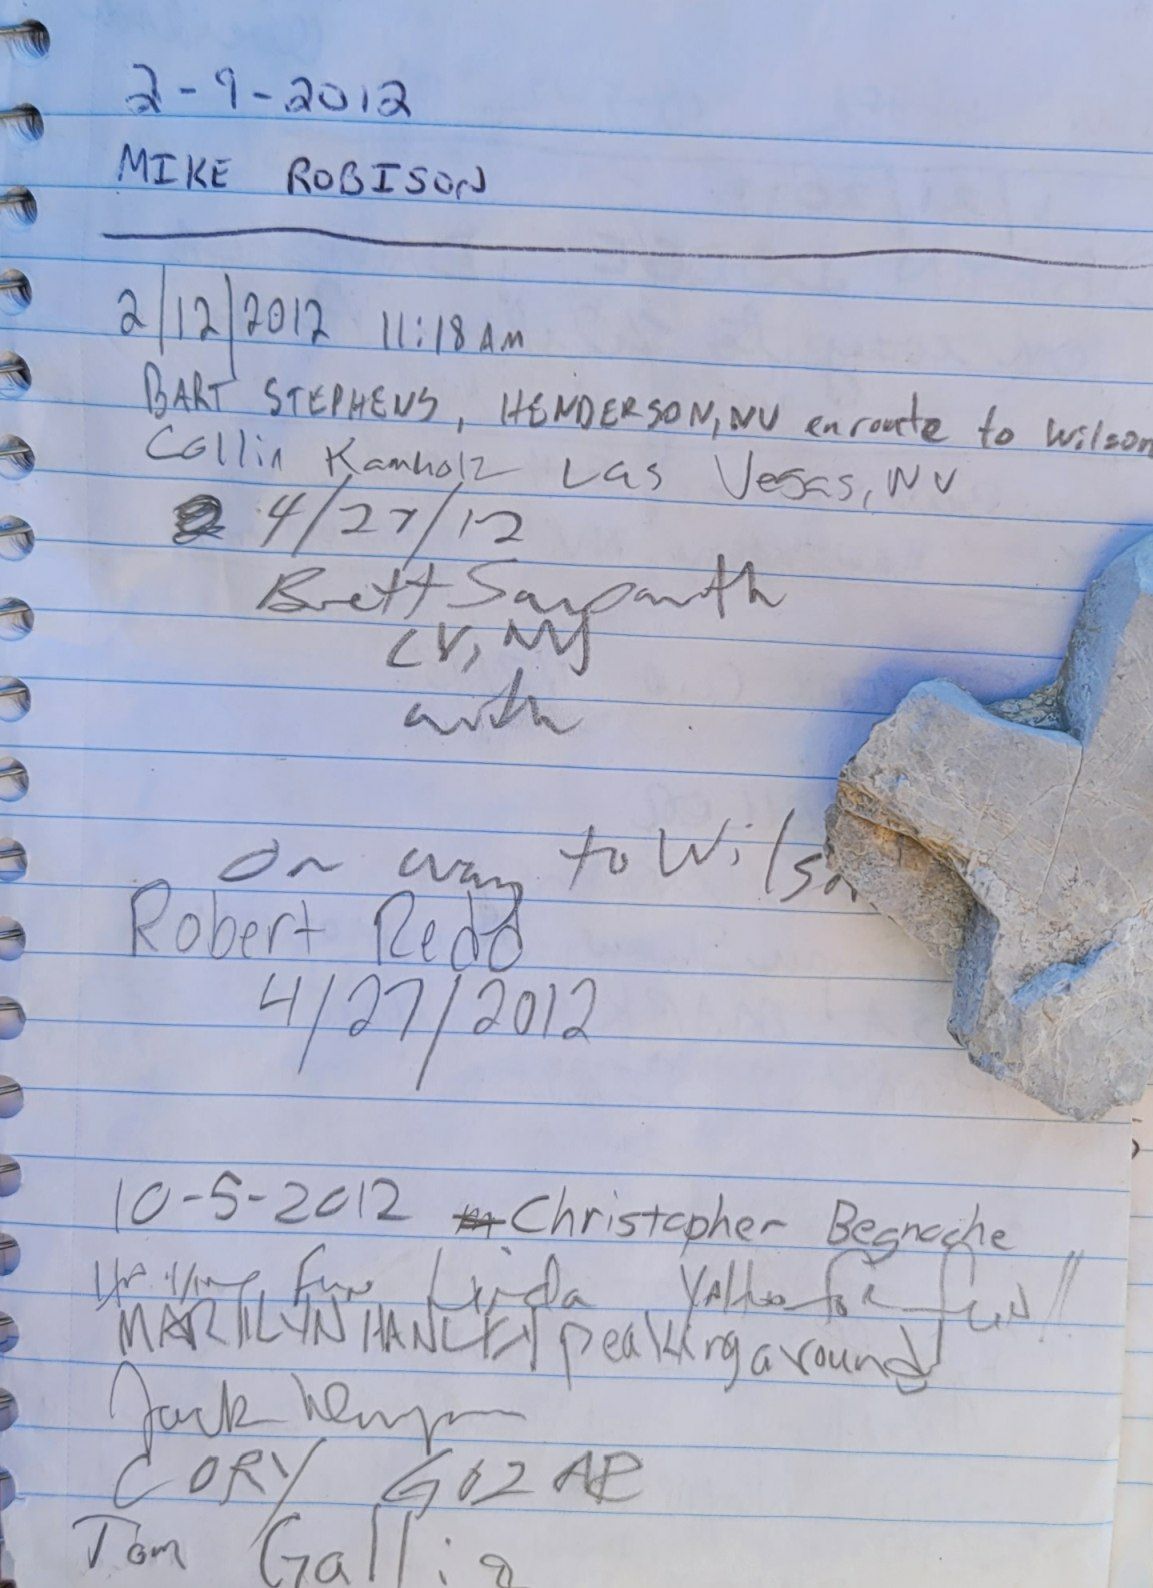 2-9-2012
MIKE ROBISON
2/12/2012 11:18 AM
BART STEPHENS, HENDERSON, NV enroute to Wilson
Collin Kamholz Las Vegas, NV
4/27/12
Brett
LV, NV
with
on way to Wilson
Robert Redd
4/27/2012
10-5-2012 Christopher Begnoche
Linda fun!!
MARILYN HANLEY peaking around
Jack
CORY
Tom